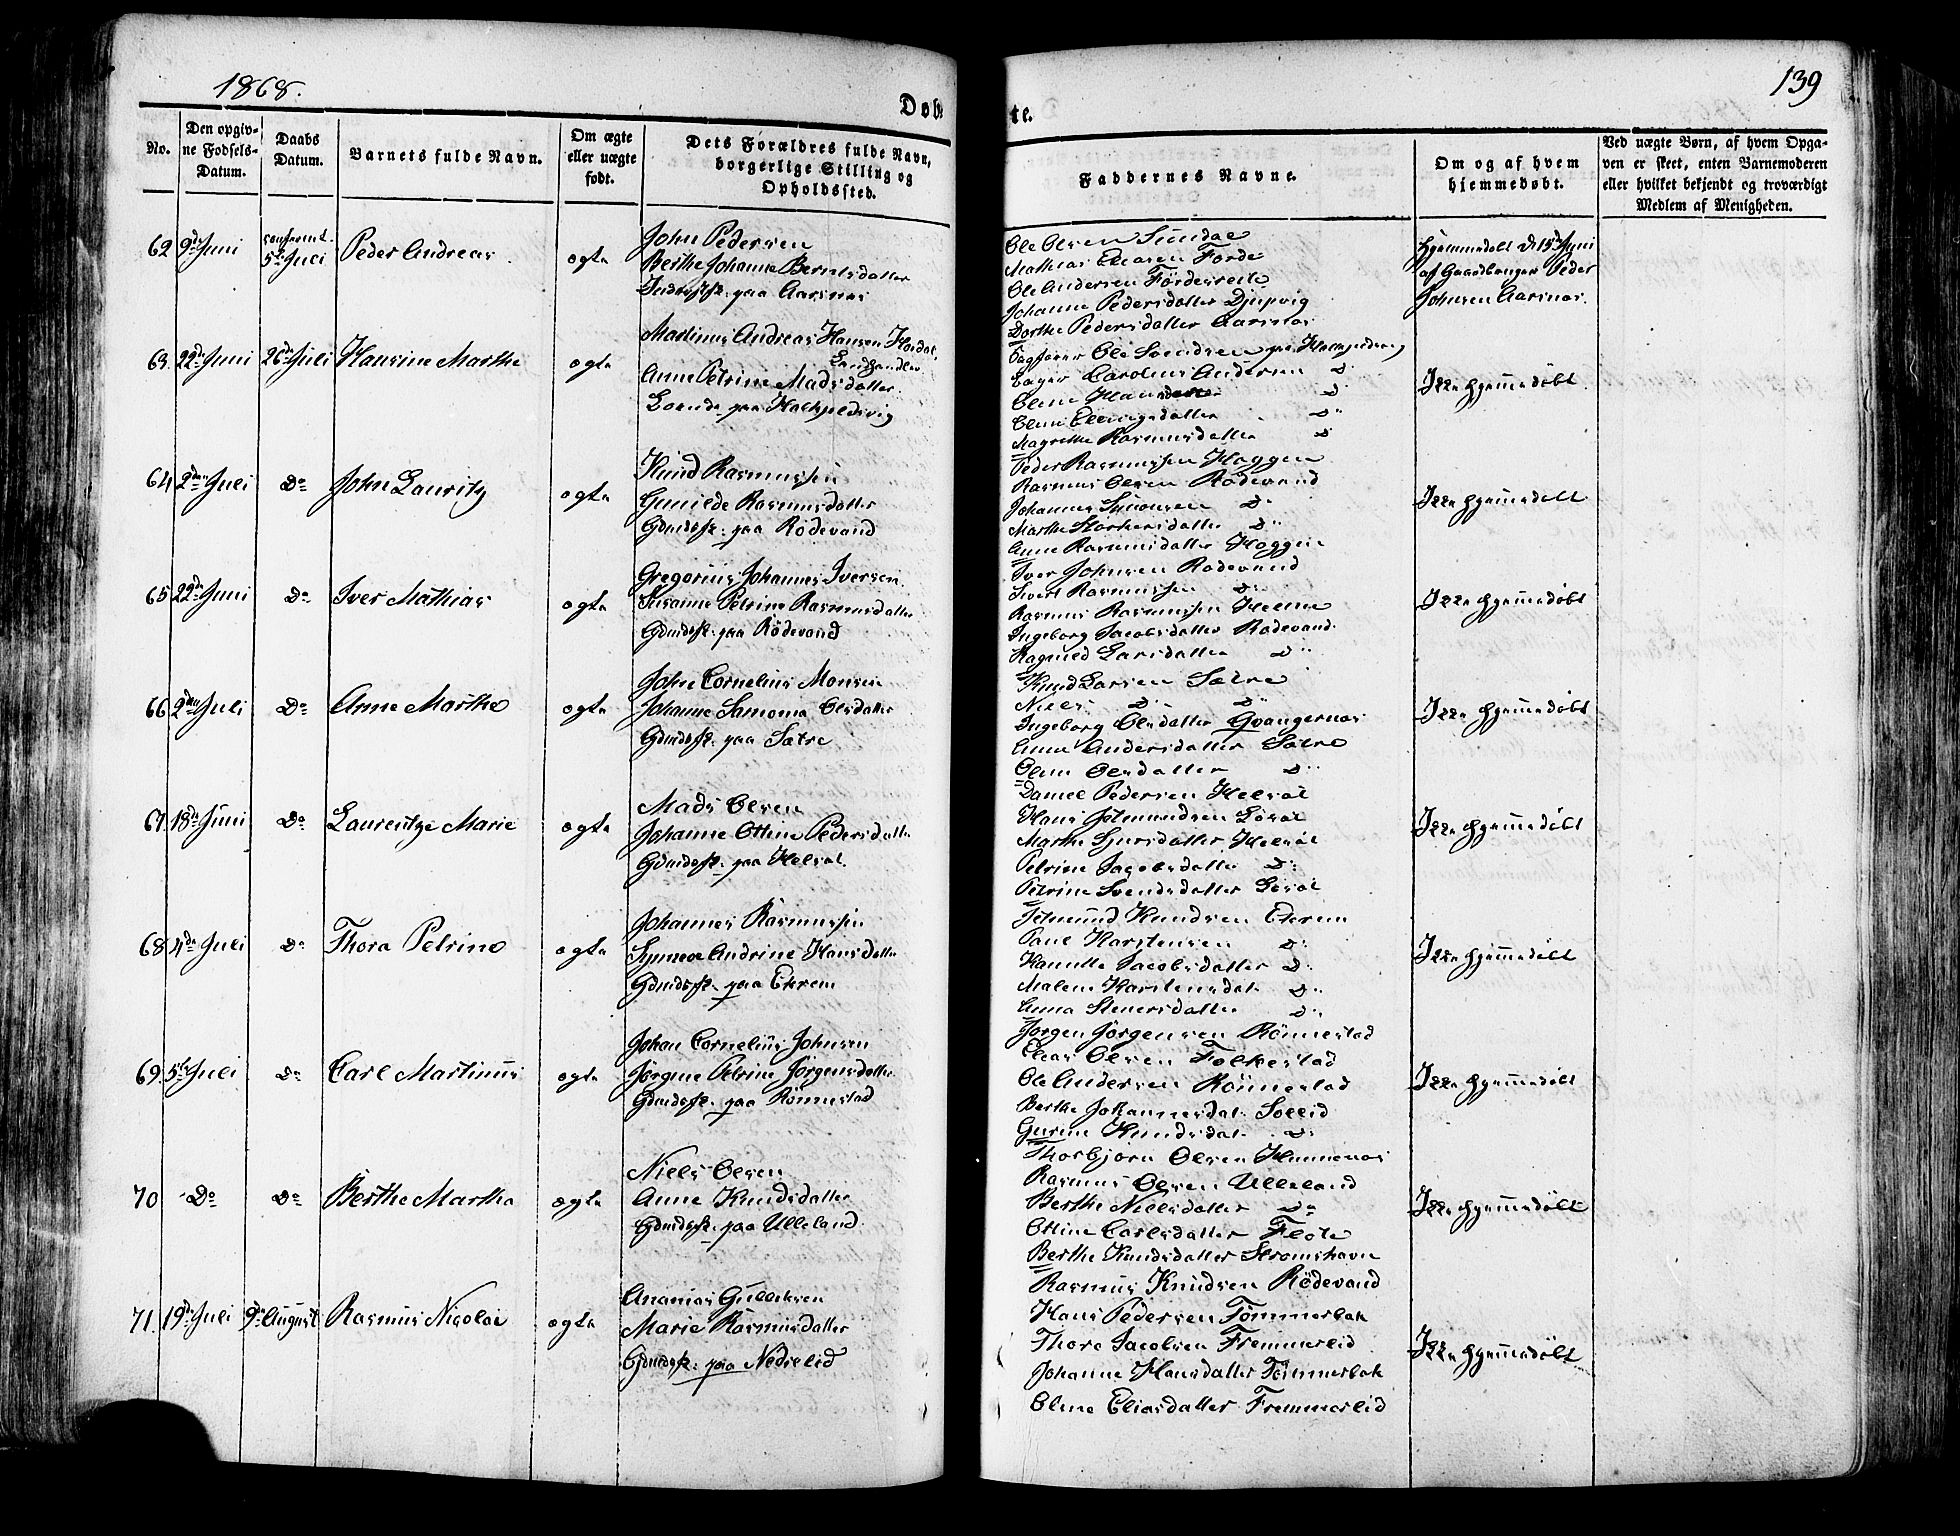 1868.
139
Døbte.
No.
Den opgiv-
ne Fødsels-
Datum.
Daabs
Datum.
Barnets fulde Navn.
Om ægte
eller uægte
født.
Dets Forældres fulde Navn,
borgerlige Stilling og
Opholdssted.
Faddernes Navne.
Om og af hvem
hjemmedøbt.
Ved uægte Børn, af hvem Opga-
ven er skeet, enten Barnemoderen
eller hvilket bekjendt og troværdigt
Medlem af Menigheden.
62
9de Juni
5te Juli
Peder Andreas
ægte
John Pedersen
Berthe Johanne Berntsdatter
paa Aarsnes
Ole Olsen Sundal
Mathias Eliasen Förde
Ole Andersen Fördesreite
Johanne Pedersdatter Djupvig
Dorthe Pedersdatter Aarsnes
Hjemmedøbt d 15de Juni
af Gaardbruger Peder
Johnsen Aarsnes.
63.
22de Juni
26de Juli
Hansine Marthe
ægte
Martinus Andreas Hansen
Landhandler
Anne Petrine Madsdatter
Ole Svendsen
Carolus Andersen D
Oline Hansdatter D
Oline Ellingsdatter D
Magrethe Rasmusdatter D
Ikke hjemmedøbt.
64
2den Juli
Do
John Lauritz
ægte
Knud Rasmussen
Gunilde Rasmusdatter
Gdmdsfk. paa Rödevand
Peder Rasmussen Haggen
Rasmus Olsen Rödevand
Johannes Simonsen D
Marthe D
Anne Rasmusdatter Haggen
Ikke hjemmedøbt
65
22de Juni
Do
Iver Mathias
ægte
Gregorius Johannes Iversen
Susanne Petrine Rasmusdatter
Gdmdsfk. paa Rödevand
Iver Johnsen Rödevand
Sivert Rasmussen D
Rasmus Rasmussen
Ingeborg Jacobsdatter Rödevand.
Ragnild Larsdatter D
Ikke hjemmedøbt
66
2den Juli
Do
Anne Marthe
ægte
John Cornelius Monsen
Johanne Olsdatter
Gdmdsfk. paa Sætre
Knud Larsen Sætre
Niels D D
Ingeborg Olsdatter
Anne Andersdatter Sætre
Oline Olsdatter D
Ikke hjemmedøbt
67
18de Juni
Do
Laurentze Marie
ægte
Mads Olsen
Johanne Ottine Pedersdatter
Gdmdsfk. paa Helsøl
Daniel Pedersen Helsøl
Hans
Marthe Sjursdatter Helsøl
Petrine Jacobsdatter D
Petrine Svendsdatter
Ikke hjemmedøbt
68
4de Juli
Do
Thora Petrine
ægte
Johannes Rasmussen
Synneve Andrine Hansdatter
Gdmdsfk. paa Ekrem
Knudsen Ekrem
Paul Karstensen D
Jacobsdatter D
Malene Karstensdat. D
Anna Steners­datter D
Ikke hjemmedøbt
69
5te Juli
Do
Carl Martinus
ægte
Johan Cornelius Johnsen
Jörgine Petrine Jörgensdatter
Gdmdsfk. paa Rönnestad
Jorgen Jörgensen Rönnestad
Elias Olsen Folkestad
Ole Andersen Rönnestad
Berthe Johannesdat. Sollid
Gurine Knudsdat. D
Ikke hjemmedøbt
70
Do
Do
Berthe Martha
ægte
Niels Olsen
Anne Knudsdatter
Gdmdsfk. paa Ulleland
Thorbjorn Olsen
Rasmus Olsen Ulleland
Berthe Nielsdatter Do
Ottine Carlsdatter Flote
Berthe Knudsdatter Stromshavn
Ikke hjemmedøbt
71.
19de Juli
9de August
Rasmus Nicolai
ægte
Ananias Gulleksen
Marie Rasmusdatter
Gdmdsfk. paa Nedrelid
Rasmus Knudsen Rödevand
Hans Pedersen Tömmerbak
Thore Jacobsen Fremmerlid
Johanne Hansdatter Tömmerbak
Oline Eliasdatter Fremmerlid
Ikke hjemmedøbt